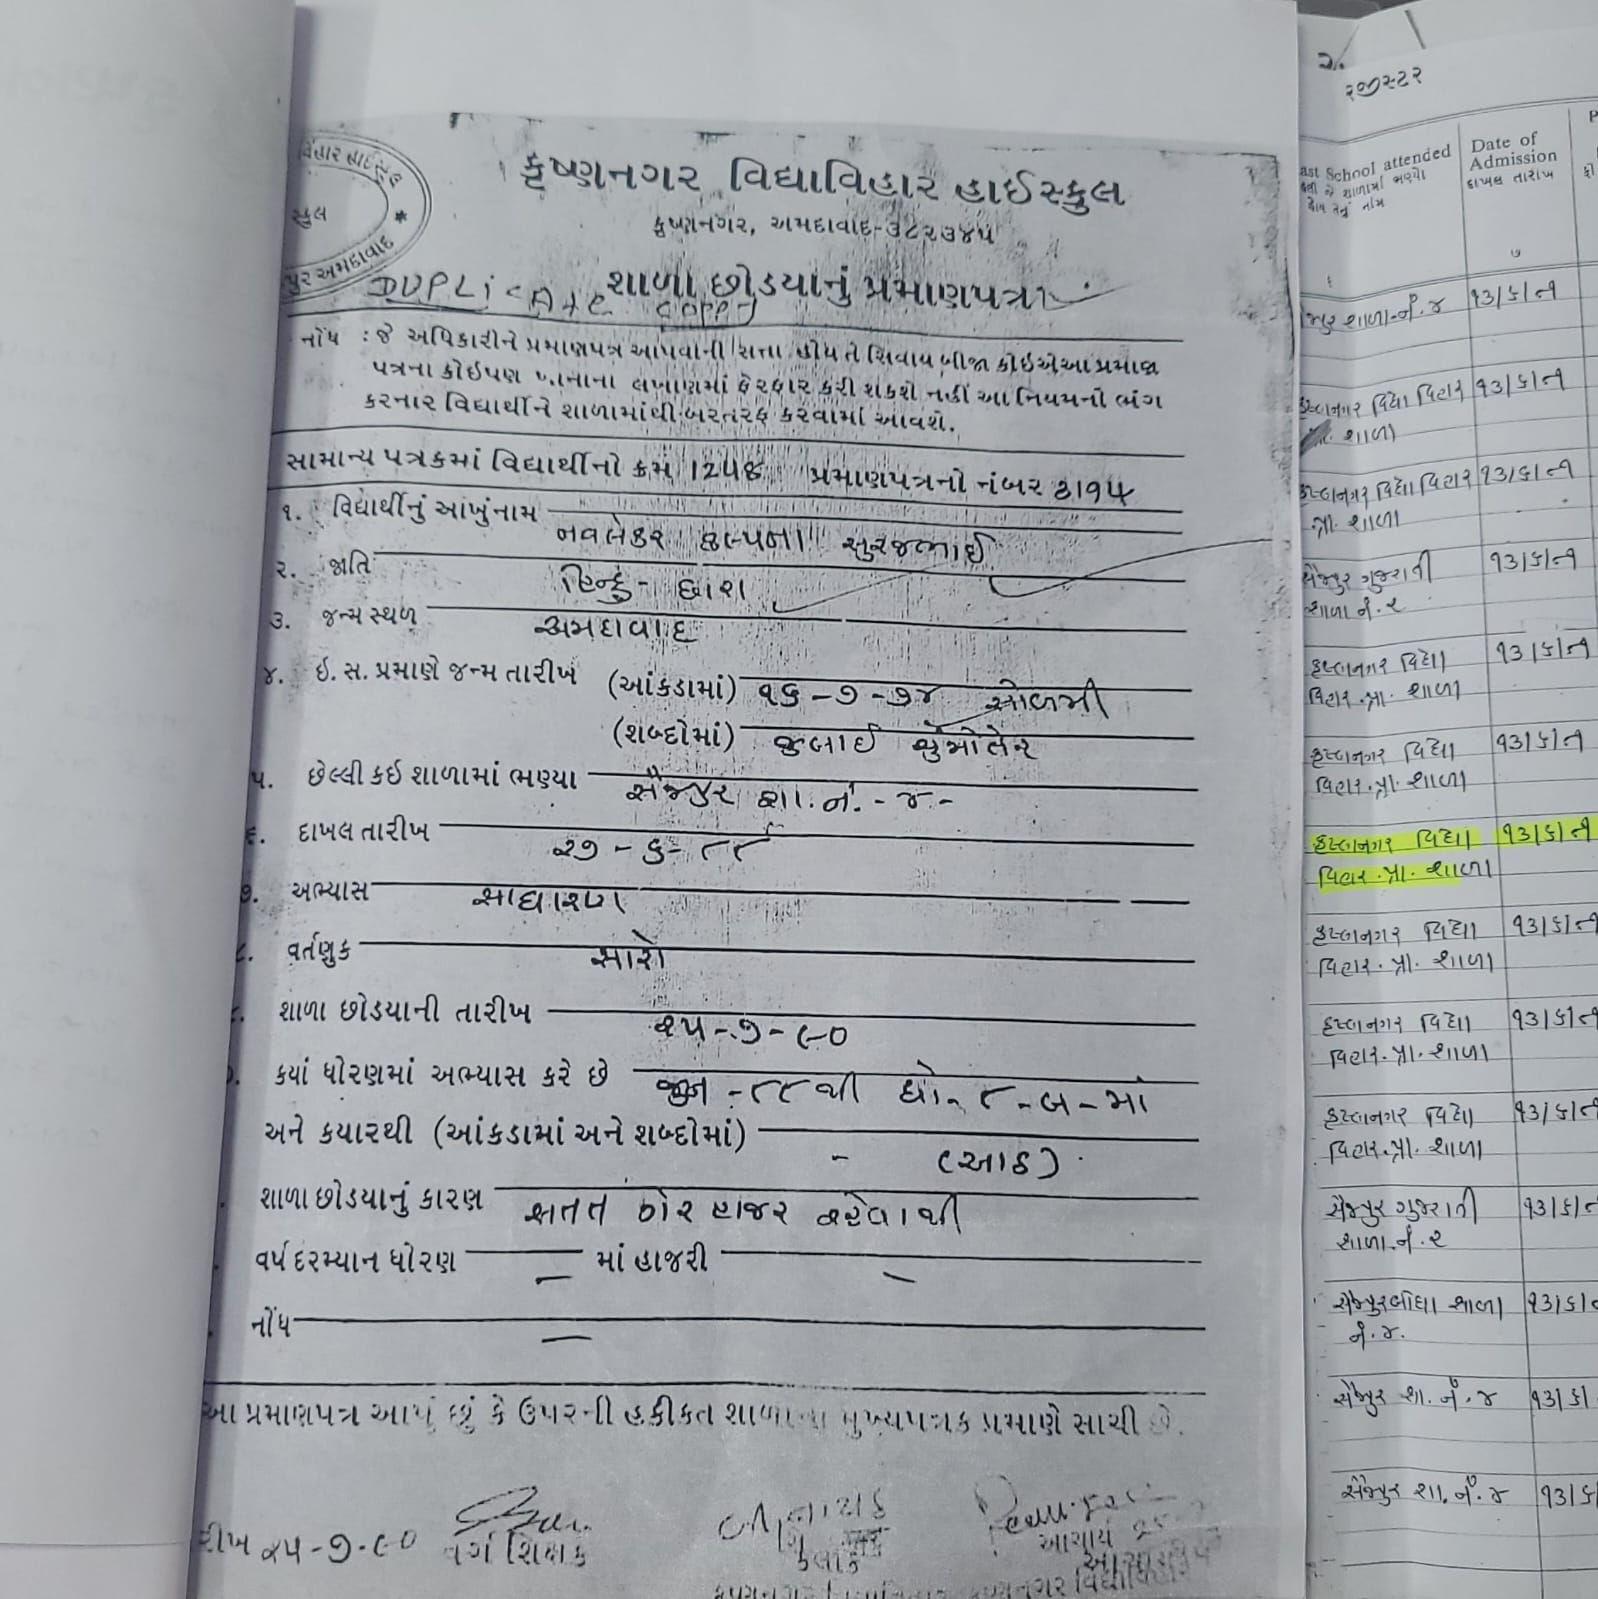 વિહાર હાઈસ્કૂલ
સ્કુલ
પુર અમદાવાદ
કૃષ્ણનગર વિદ્યાવિહાર હાઈસ્કુલ
કૃષ્ણનગર, અમદાવાદ-૩૮૨૩૪૫
DUPLicAte COPPY
શાળા છોડયાનું પ્રમાણપત્ર
નોંધ : જે અધિકારીને પ્રમાણપત્ર આપવાની સત્તા હોય તે સિવાય બીજા કોઇએ આ પ્રમાણ
પત્રના કોઇપણ ખાનાના લખાણમાં ફેરફાર કરી શકશે નહીં આ નિયમનો ભંગ
કરનાર વિદ્યાર્થીને શાળામાંથી બરતરફ કરવામાં આવશે.
સામાન્ય પત્રકમાં વિદ્યાર્થીનો ક્રમ પ્રમાણપત્રનો નંબર ૩૧૧૫
૧. વિદ્યાર્થીનું આખુંનામ નવલેકર કલ્પના સુરજભાઈ
૨. જાતિ હિન્દુ - છારા
૩. જન્મ સ્થળ અમદાવાદ
૪. ઇ. સ. પ્રમાણે જન્મ તારીખ (આંકડામાં) ૧૬ - ૭ - ૭૪ સોળમી
(શબ્દોમાં) જુલાઈ ચુંમોતેર
૫. છેલ્લી કઇ શાળામાં ભણ્યા સૈજપુર શા. નં. - ૪ -
૬. દાખલ તારીખ ૨૭ - ૬ - ૮૮
૭. અભ્યાસ સાધારણ
૮. વર્તણુક સારી
૯. શાળા છોડયાની તારીખ ૨૫ - ૭ - ૯૦
કયાં ધોરણમાં અભ્યાસ કરે છે જુન - ૮૮ થી ધો - ૮ - બ - માં
અને કયારથી (આંકડામાં અને શબ્દોમાં) - (આઠ)
શાળા છોડયાનું કારણ સતત ગેર હાજર રહેવાથી
વર્ષ દરમ્યાન ધોરણ — માં હાજરી —
નોંધ —
આ પ્રમાણપત્ર આપું છું કે ઉપરની હકીકત શાળાના મુખ્યપત્રક પ્રમાણે સાચી છે.
રીખ ૨૫ - ૭ - ૯૦
વર્ગ શિક્ષક
કલાર્ક
આચાર્ય
રજીસ્ટર
ast School attended
Date of
Admission
દાખલ તારીખ
૭
પુર શાળા નં. ૪ ૧૩/૬/
કૃષ્ણનગર વિદ્યા વિહાર ૧૩/૬/
પ્રા. શાળા
કૃષ્ણનગર વિદ્યા વિહાર ૧૩/૬/
પ્રા. શાળા
સૈજપુર ગુજરાતી ૧૩/૬/
શાળા નં. ૨
કૃષ્ણનગર વિદ્યા ૧૩/૬/
વિહાર પ્રા. શાળા
કૃષ્ણનગર વિદ્યા ૧૩/૬/
વિહાર પ્રા. શાળા
કૃષ્ણનગર વિદ્યા ૧૩/૬/
વિહાર પ્રા. શાળા
કૃષ્ણનગર વિદ્યા ૧૩/૬/
વિહાર પ્રા. શાળા
કૃષ્ણનગર વિદ્યા ૧૩/૬/
વિહાર પ્રા. શાળા
કૃષ્ણનગર વિદ્યા ૧૩/૬/
વિહાર પ્રા. શાળા
સૈજપુર ગુજરાતી ૧૩/૬/
શાળા નં. ૨
સૈજપુરબોઘા શાળા ૧૩/૬/
નં. ૪.
સૈજપુર શા. નં. ૪ ૧૩/૬/
સૈજપુર શા. નં. ૪ ૧૩/૬